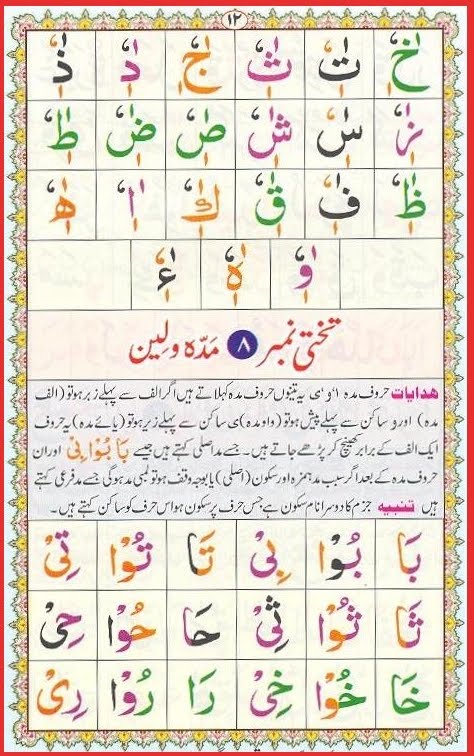 ۱۲
خٰٖٗ تٰٖٗ ثٰٖٗ جٰٖٗ دٰٖٗ ذٰٖٗ
زٰٖٗ سٰٖٗ شٰٖٗ صٰٖٗ ضٰٖٗ طٰٖٗ
ظٰٖٗ فٰٖٗ قٰٖٗ كٰٖٗ اٰٖٗ هٰٖٗ
وٰٖٗ ہٰٖٗ ءٰٖٗ
تختی نمبر ۸ مَدّہ ولِین
ھدایات حروف مدہ ا ، و ، ی یہ تینوں حروف مدہ کہلاتے ہیں اگر الف سے پہلے زبر ہو تو (الف
مدہ) اور و ساکن سے پہلے پیش ہو تو (واو مدہ) ی ساکن سے پہلے زیر ہو تو (یائے مدہ) یہ حروف
ایک الف کے برابر کھینچ کر پڑھے جاتے ہیں۔ جسے مد اصلی کہتے ہیں جیسے بَا بُوْا بِیْ اور ان
حروف مدہ کے بعد اگر سبب مد ہمزہ اور سکون (اصلی) یا بوجہ وقف ہو تو لمبی مد ہو گی جسے مد فرعی کہتے
ہیں تنبیہ جزم کا دوسرا نام سکون ہے جس حرف پر سکون ہو اس حرف کو ساکن کہتے ہیں۔
بَا بُوْا بِیْ تَا تُوْا تِیْ
ثَا ثُوْا ثِیْ حَا حُوْا حِیْ
خَا خُوْا خِیْ رَا رُوْا رِیْ